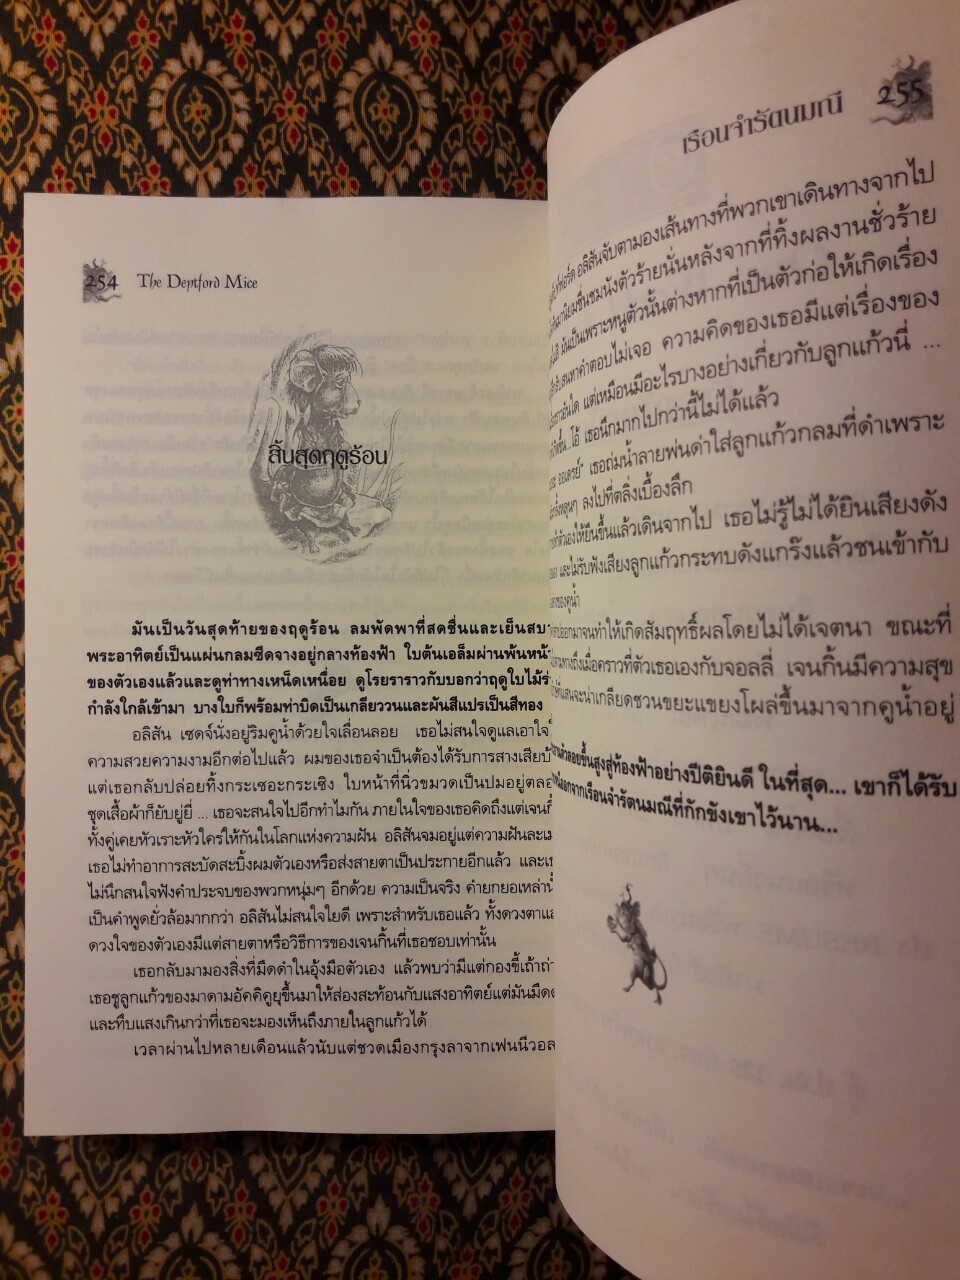 254 The Deptford Mice
สิ้นสุดฤดูร้อน
มันเป็นวันสุดท้ายของฤดูร้อน ลมพัดพาที่สดชื่นและเย็นสบา
พระอาทิตย์เป็นแผ่นกลมซีดจางอยู่กลางท้องฟ้า ใบต้นเอล์มผ่านพ้นหน้
ของตัวเองแล้วและดูท่าทางเหน็ดเหนื่อย ดูโรยราราวกับบอกว่าฤดูใบไม้ร่
กำลังใกล้เข้ามา บางใบก็พร้อมท่าบิดเป็นเกลียววนและผันสีแปรเป็นสีทอง
อลิสัน เซดจ์นั่งอยู่ริมคูน้ำด้วยใจเลื่อนลอย เธอไม่สนใจดูแลเอาใจใ
ความสวยความงามอีกต่อไปแล้ว ผมของเธอจำเป็นต้องได้รับการสางเสียบ้
แต่เธอกลับปล่อยทิ้งกระเซอะกระเซิง ใบหน้าที่นิ่วขมวดเป็นปมอยู่ตลอ
ชุดเสื้อผ้าก็ยับยู่ยี่ ... เธอจะสนใจไปอีกทำไมกัน ภายในใจของเธอคิดถึงแต่เจนกิ้
ทั้งคู่เคยหัวเราะหัวใคร่ให้กันในโลกแห่งความฝัน อลิสันจมอยู่แต่ความฝันละเม
เธอไม่ทำอาการสะบัดสะบิ้งผมตัวเองหรือส่งสายตาเป็นประกายอีกแล้ว และเธ
ไม่นึกสนใจฟังคำประจบของพวกหนุ่มๆ อีกด้วย ความเป็นจริง คำยกยอเหล่านั้
เป็นคำพูดยั่วล้อมากกว่า อลิสันไม่สนใจใยดี เพราะสำหรับเธอแล้ว ทั้งดวงตาแล
ดวงใจของตัวเองมีแต่สายตาหรือวิธีการของเจนกิ้นที่เธอชอบเท่านั้น
เธอกลับมามองสิ่งที่มืดดำในอุ้งมือตัวเอง แล้วพบว่ามีแต่กองขี้เถ้าถ่า
เธอชูลูกแก้วของมาดามอัคคิคูยุขึ้นมาให้ส่องสะท้อนกับแสงอาทิตย์แต่มันมืด
และทึบแสงเกินกว่าที่เธอจะมองเห็นถึงภายในลูกแก้วได้
เวลาผ่านไปหลายเดือนแล้วนับแต่ชวดเมืองกรุงลาจากเฟนนีวอล
เรือนจำรัตนมณี 255
ฟอร์ด อลิสันจับตามองเส้นทางที่พวกเขาเดินทางจากไป
นิยมชื่นชมนังตัวร้ายนั่นหลังจากที่ทิ้งผลงานชั่วร้าย
มันเป็นเพราะหนูตัวนั้นต่างหากที่เป็นตัวก่อให้เกิดเรื่อง
คำตอบไม่เจอ ความคิดของเธอมีแต่เรื่องของ
แต่เหมือนมีอะไรบางอย่างเกี่ยวกับลูกแก้วนี่ ...
โอ้ เธอนึกมากไปกว่านี้ไม่ได้แล้ว
ออเดรย์" เธอถ่มน้ำลายพ่นด่าใส่ลูกแก้วกลมที่ดำเพราะ
ลงไปที่ตลิ่งเบื้องลึก
ตัวเองให้ยืนขึ้นแล้วเดินจากไป เธอไม่รู้ไม่ได้ยินเสียงดัง
และไม่รับฟังเสียงลูกแก้วกระทบดังแกร๊งแล้วชนเข้ากับ
ของคูน้ำ
ออกมาจนทำให้เกิดสัมฤทธิ์ผลโดยไม่ได้เจตนา ขณะที่
ถึงเมื่อคราวที่ตัวเธอเองกับจอลลี่ เจนกิ้นมีความสุข
แสนจะน่าเกลียดชวนขยะแขยงโผล่ขึ้นมาจากคูน้ำอยู่
แล้วลอยขึ้นสูงสู่ท้องฟ้าอย่างปีติยินดี ในที่สุด... เขาก็ได้รับ
จากเรือนจำรัตนมณีที่กักขังเขาไว้นาน...